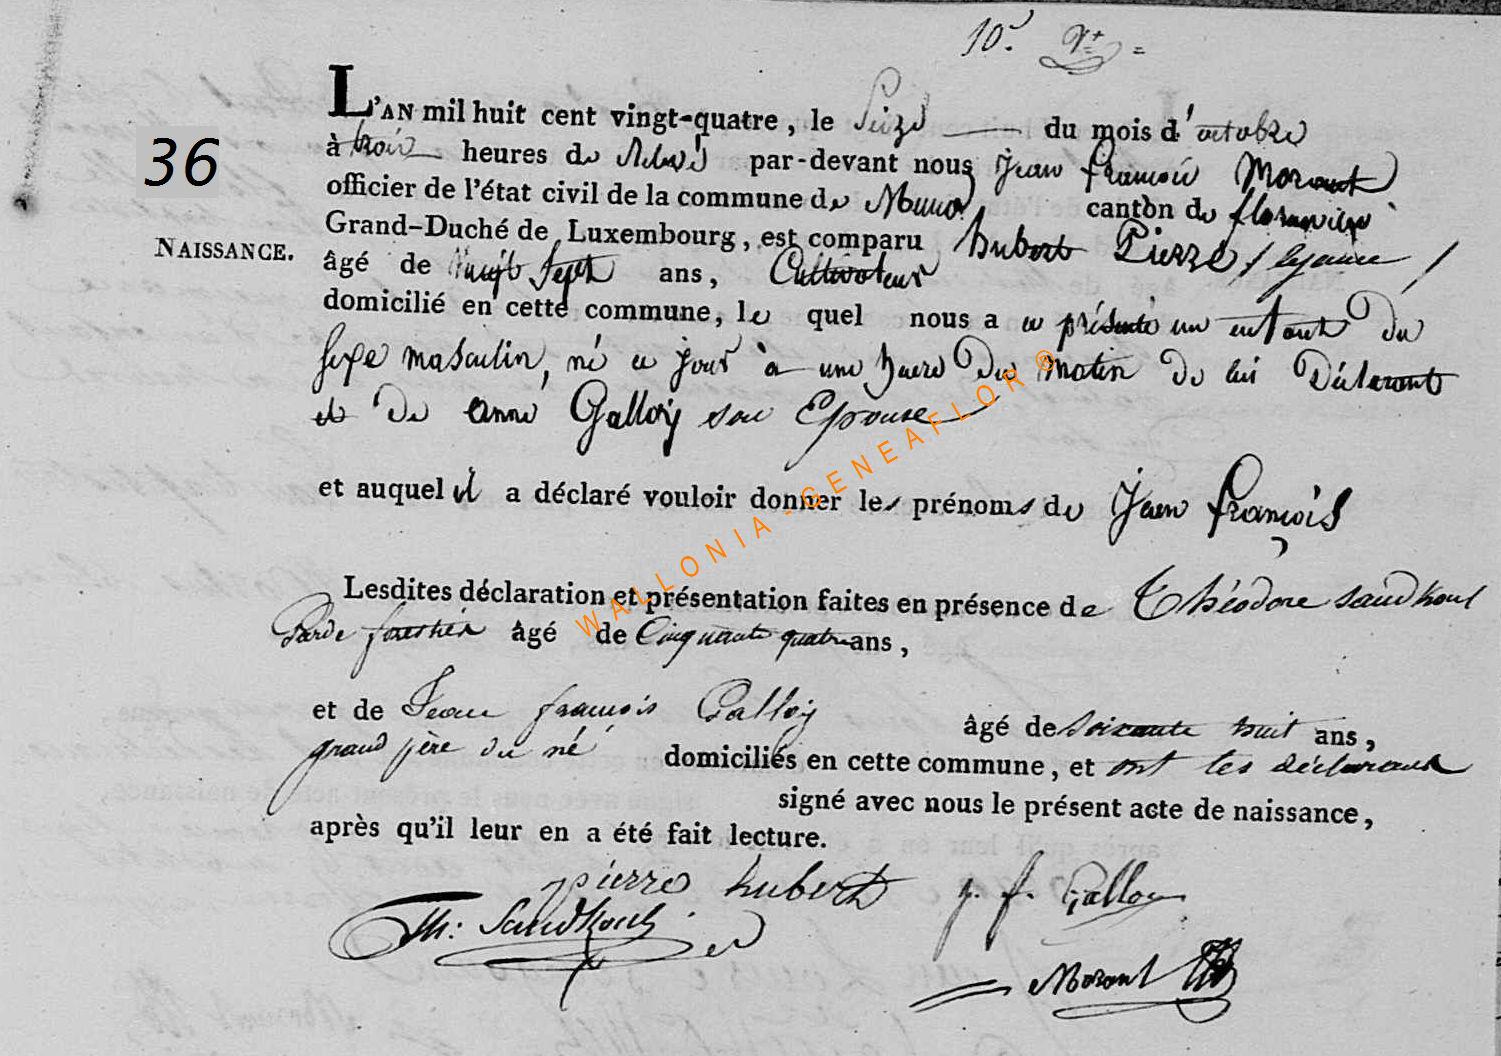 10.e
36
L'AN mil huit cent vingt-quatre, le Seize du mois d'octobre
à trois heures de relevé par-devant nous Jean françois Morant
officier de l'état civil de la commune de Muno canton de florenville
NAISSANCE.
Grand-Duché de Luxembourg, est comparu hubert Pierre / lejeune /
âgé de vingt Sept ans, Cultivateur
domicilié en cette commune, le quel nous a présenté un enfant du
sexe masculin, né ce jour à une heure du matin de lui Déclarant
et de anne Galloy son Epouse
et auquel il a déclaré vouloir donner les prénoms de Jean françois
Lesdites déclaration et présentation faites en présence de Théodore sandkoul
Garde forestier âgé de Cinquante quatre ans,
et de Jean françois Galloy âgé de soixante huit ans,
grand père du né domiciliés en cette commune, et ont les déclarants
signé avec nous le présent acte de naissance,
après qu'il leur en a été fait lecture.
pierre hubert j. f. Galloy
Th: Sandkoul
Morant
WALLONIA - GENEAFLOR ®